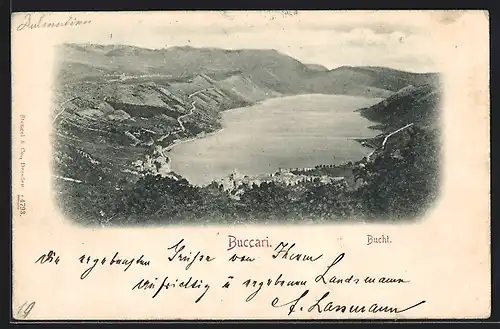 Dalmatien
Stengel & Co., Dresden 14798.
Buccari.
Bucht.
Die ergebensten Grüsse von Ihrem
aufrichtig u ergebenen Landsmann
19